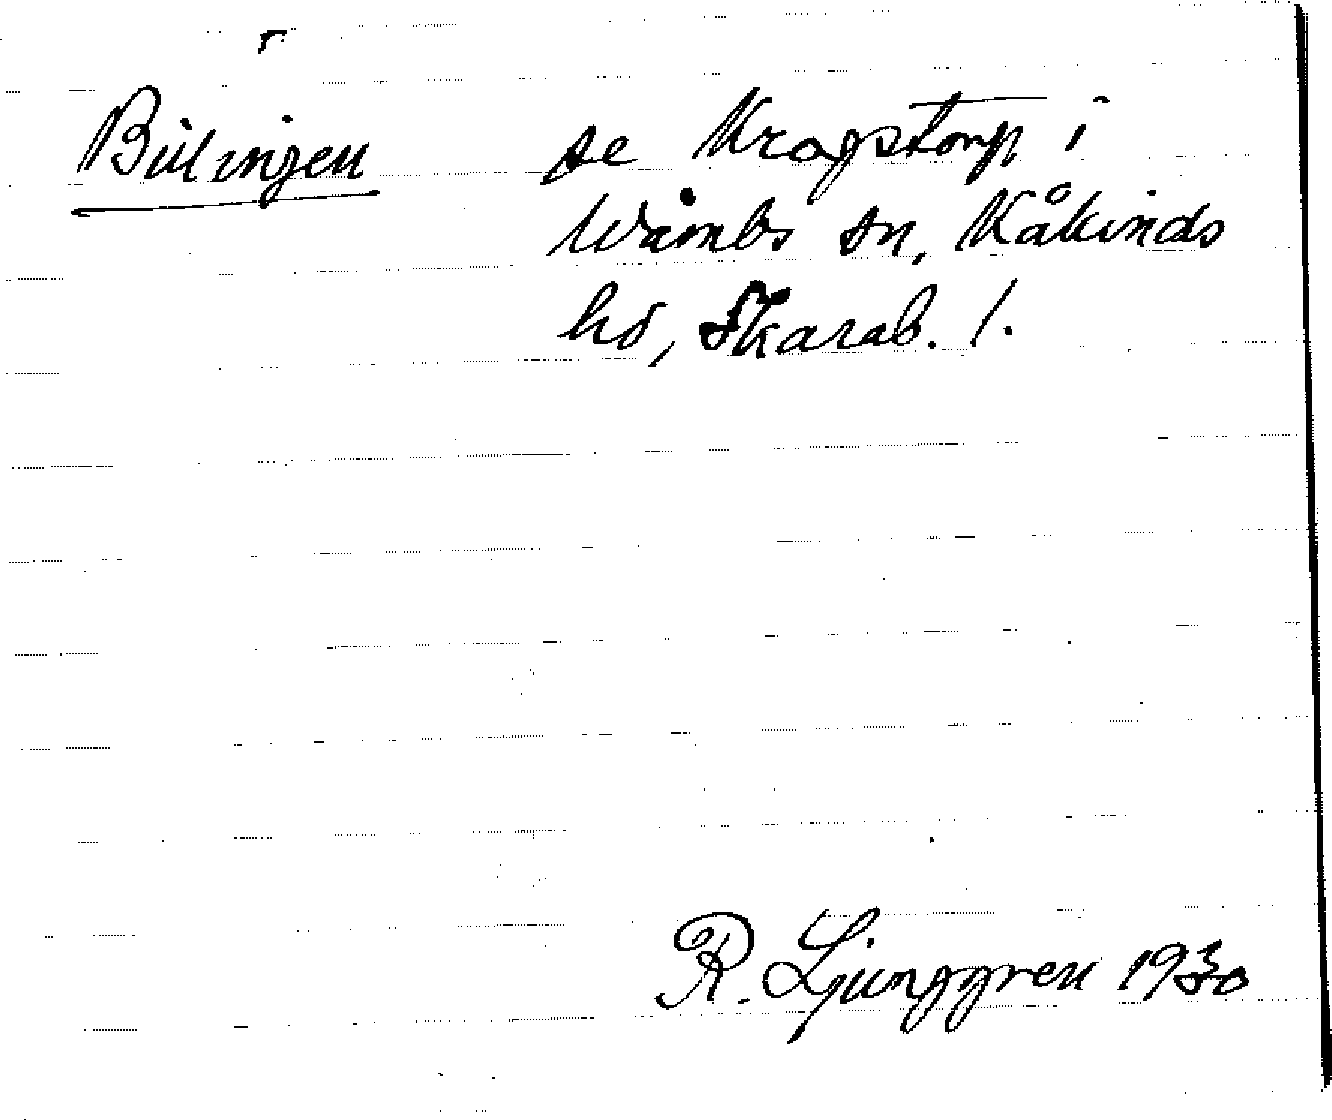 Billingen se Kragstorp i
Våmbs sn, Kåkinds
hd, Skarab. l.
R. Ljunggren 1930